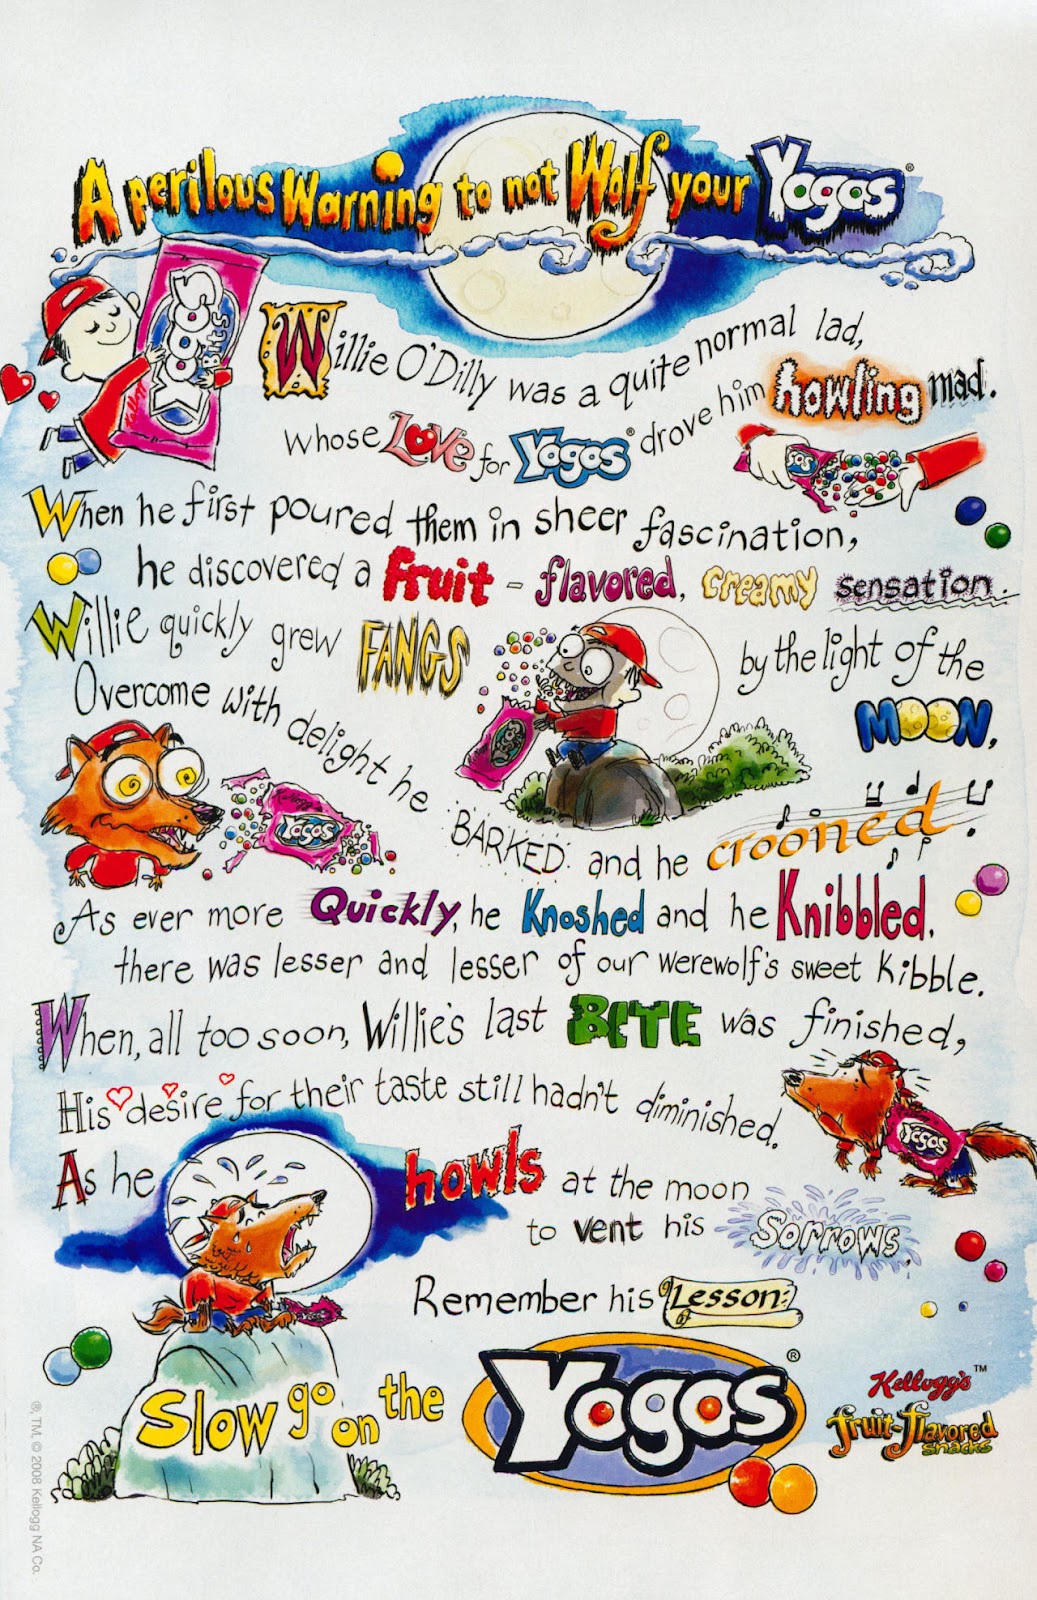 A perilous Warning to not Wolf your Yogos®
YOGOS Bits
Willie O'Dilly was a quite normal lad,
whose Love for Yogos® drove him howling mad.
When he first poured them in sheer fascination,
he discovered a fruit-flavored, creamy sensation.
Willie quickly grew FANGS by the light of the MOON,
Overcome with delight he BARKED and he crooned.
Kellogg's
Yogos
As ever more Quickly, he Knoshed and he Knibbled,
there was lesser and lesser of our werewolf's sweet kibble.
When, all too soon, Willie's last BITE was finished,
His desire for their taste still hadn't diminished.
Yogos
As he howls at the moon
to vent his Sorrows
Remember his Lesson:
Slow go on the Yogos®
Kellogg's™
fruit-flavored
snacks
®, TM, © 2008 Kellogg NA Co.